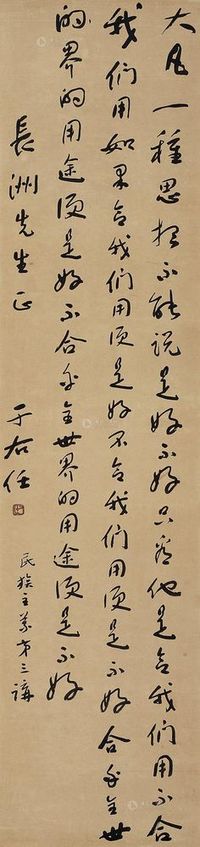 大凡一種思想不能說是好不好只看他是合我們用不合
我們用如果合我們用便是好不合我們用便是不好合乎全世
的界的用途便是好不合乎全世界的用途便是不好
民族主義第三講
長洲先生正 于右任